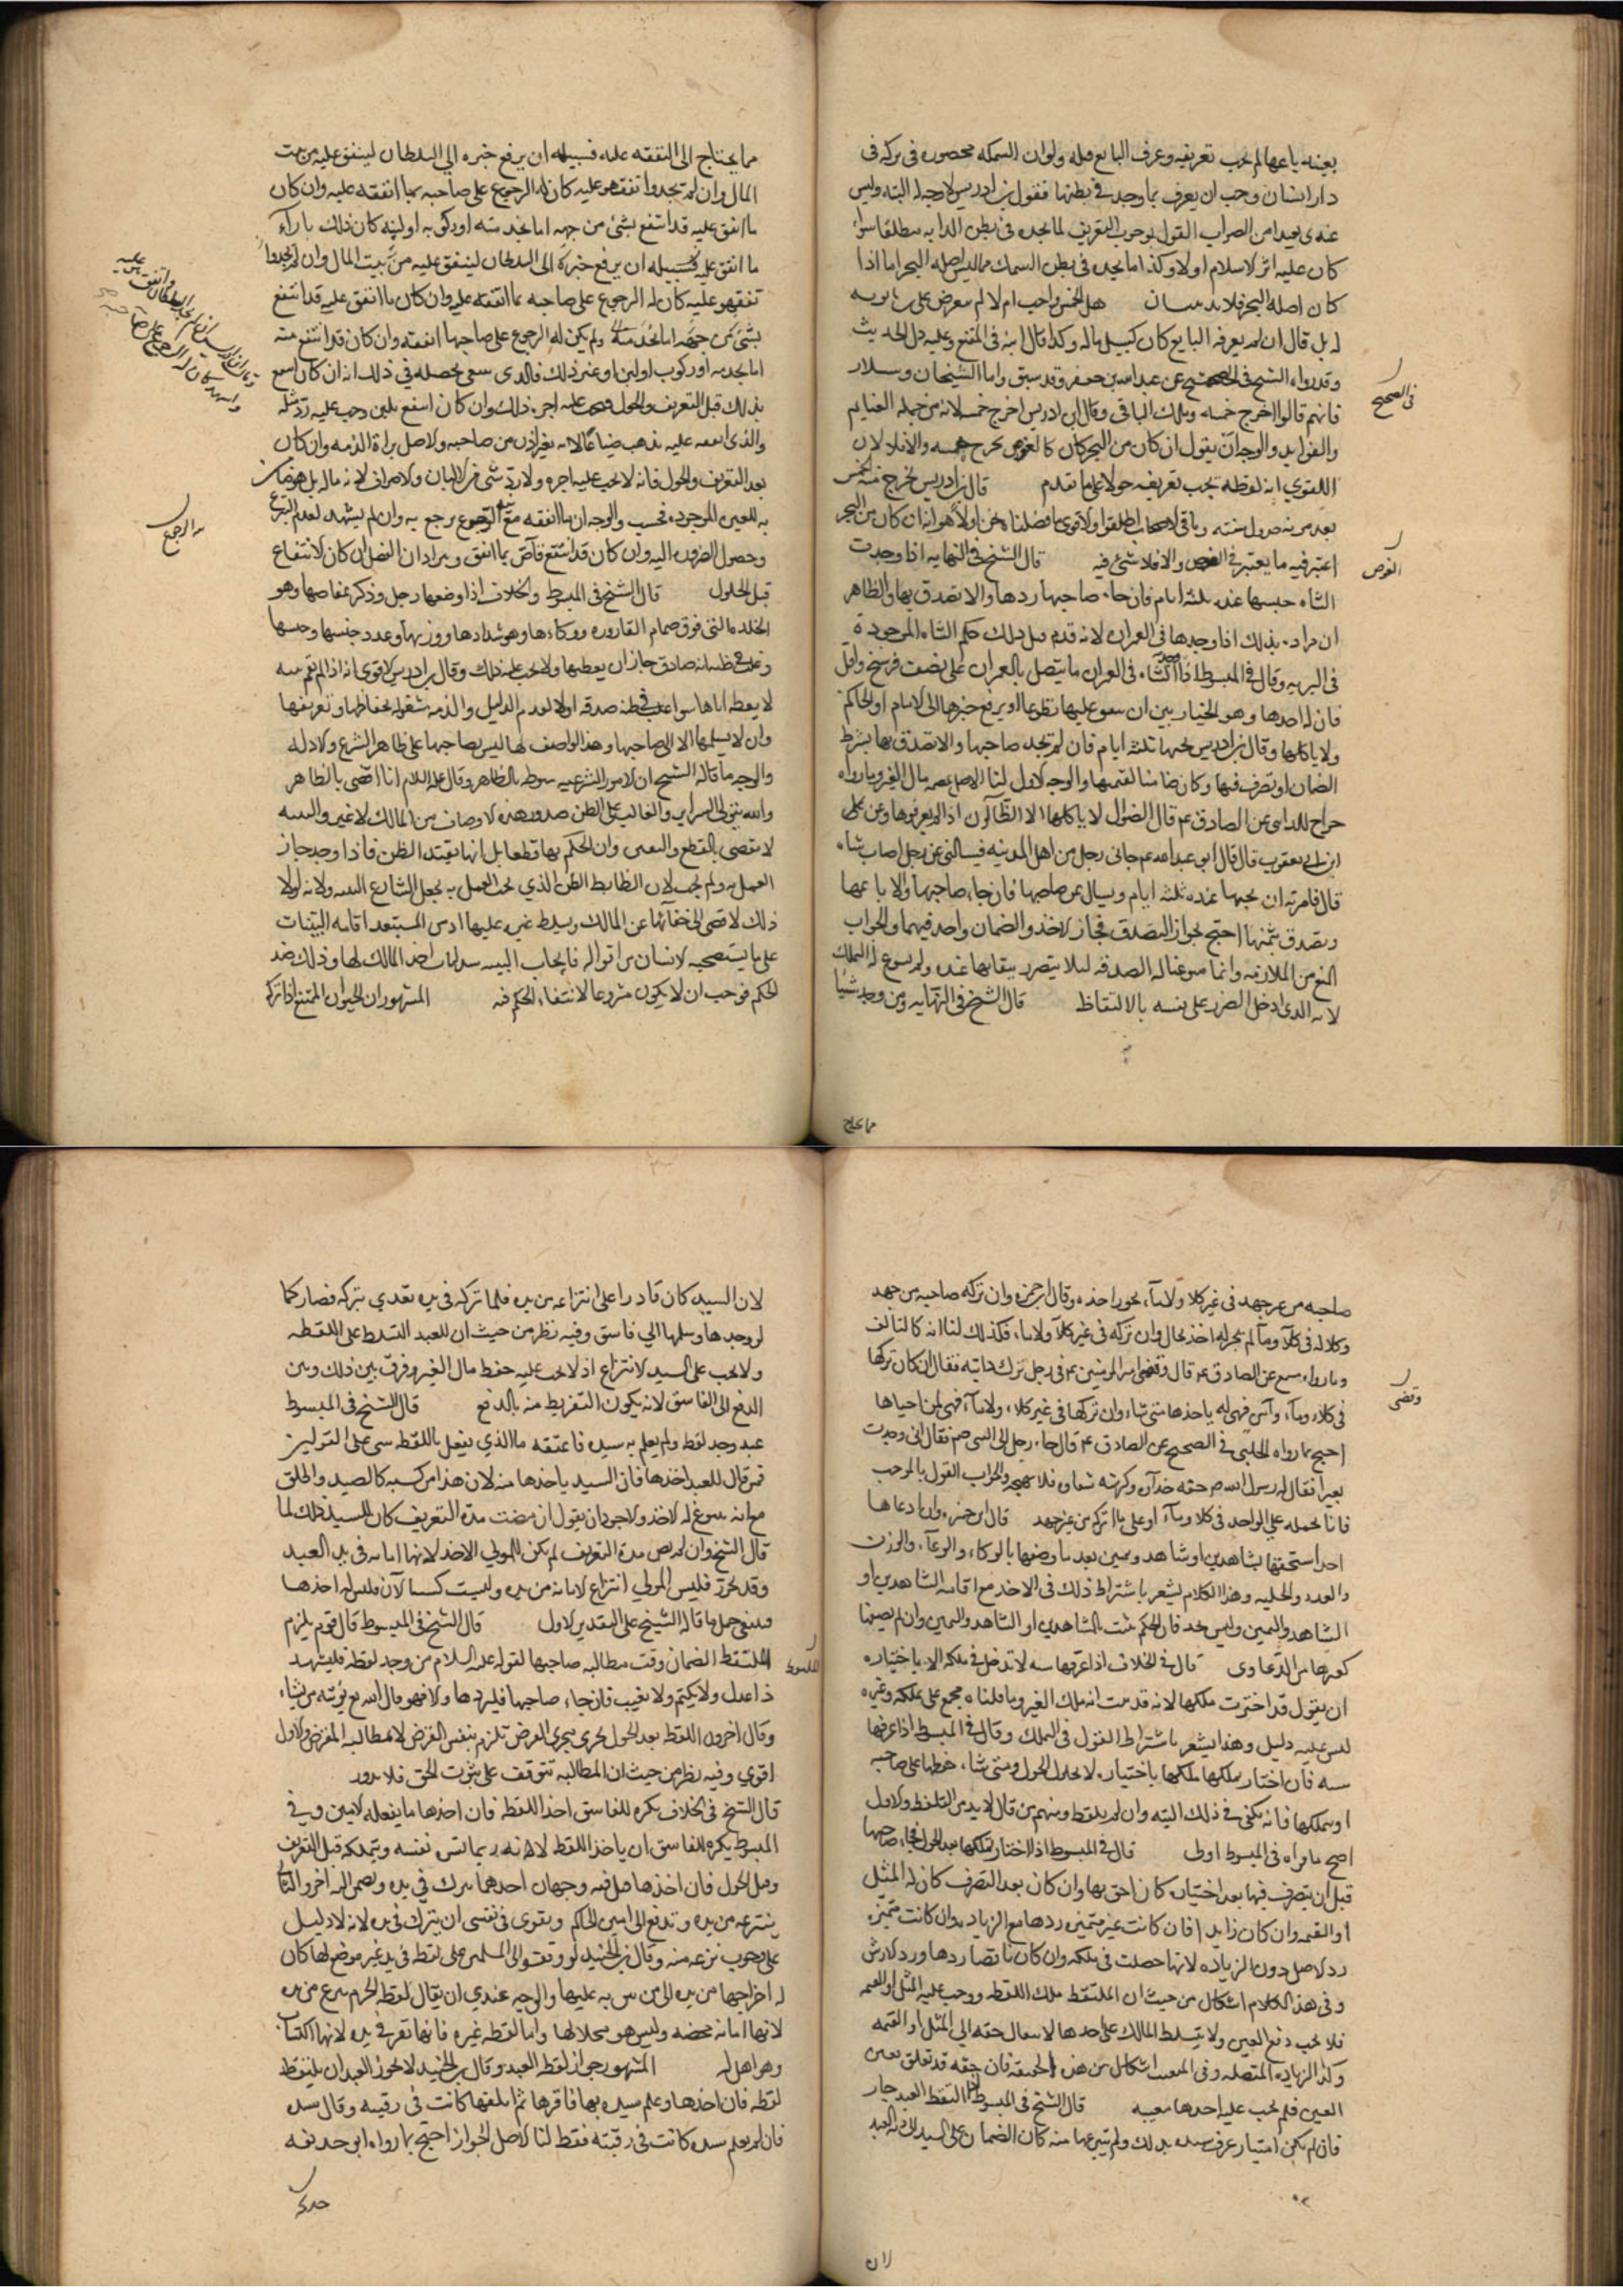 بعينه باعها لم يجب تعريفه وعرف البايع قبله ولو ان السمكه محصوره في بركه في
دار انسان وجب ان يعرف بما وجد في بطنها فقول ابن ادريس لا وجه له البته وليس
عندي بعيدا من الصواب القول بوجوب التعريف لما يجده في بطن الدابه مطلقا سوا
كان عليه اثر الاسلام او لا وكذا ما يجده في بطن السمك مما ليس اصله البحر اما اذا
كان اصله البحر فلا هل الخمس واجب ام لا لم يتعرض علي بن بابويه
له بل قال ان لم يعرفه البايع كان كسبيل ماله وكذا قال ابنه في المقنع وعليه دل الحديث
وقد رواه الشيخ في الصحيح عن عبدالله بن جعفر وقد سبق واما الشيخان وسلار
فانهم قالوا اخرج خمسه وتملك الباقي وقال ابن ادريس اخرج خمسه لانه من جمله الغنايم
والفوايد والوجه ان يقول ان كان من البحر كان كالغوص يخرج خمسه والا فلا لان
اللقوي انه لقطه يجب تعريفه حولا على ما تقدم قال ابن ادريس يخرج منه الخمس
بعد مونه طول سنته وباقي الاصحاب اطلقوا والاقوى ما فصلناه نحن اولا وهو انه ان كان من البحر
اعتبر فيه ما يعتبر في الغوص والا فلا شئ فيه قال الشيخ في النهايه اذا وجدت
الشاه حبسها عنده ثلثه ايام فان جاء صاحبها ردها والا تصدق بها والظاهر
ان مراده بذلك اذا وجدها في العمران لانه قدم قبل ذلك حكم الشاه الموجوده
في البريه وقال في المبسوط اذا وجد الشاه في العمران وما يتصل بالعمران على نصف فرسخ واقل
فان له اخذها وهو بالخيار بين ان ينفق عليها تطوعا او يرفع خبرها الى الامام او الحاكم
ولا ياكلها وقال ابن ادريس يحبسها ثلثه ايام فان لم يجد صاحبها والا تصدق بها بشرط
الضمان او تصرف فيها وكان ضامنا لقيمتها والوجه الاول لنا الاصل عصمه مال الغير وما رواه
جراح المدايني عن الصادق ع قال الضوال لا ياكلها الا الظالون اذا لم يعرفوها وعن
ابن ابي يعفور قال قال ابو عبدالله ع جاني رجل من اهل المدينه فسالني عن رجل اصاب شاه
قال فامرته ان يحبسها عنده ثلثه ايام ويسال عن صاحبها فان جاء صاحبها والا باعها
وتصدق بثمنها احتج بجواز التصدق فجاز الاخذ والضمان واحد فيهما والجواب
المنع من الملازمه وانما سوغنا له الصدقه ليلا يتضرر ببقايها عنده ولم يسوغ له التملك
لانه الذي ادخل الضرر على نفسه بالالتقاط قال الشيخ في النهايه ومن وجد شيئا
في الصحيح
الغوص
مما يحتاج
مما يحتاج الى النفقه عليه فسبيله ان يرفع خبره الى السلطان لينفق عليه من بيت
المال وان لم يجد وانفق هو عليه كان له الرجوع على صاحبه بما انفقه عليه وان كان
ما انفق عليه قد انتفع بشئ من جهه اما بخدمته او ركوبه او لبنه كان ذلك بازاء
ما انفق عليه فسبيله ان يرفع خبره الى السلطان لينفق عليه من بيت المال وان لم يجد وا
نفق هو عليه كان له الرجوع على صاحبه بما انفقه عليه وان كان ما انفق عليه قد انتفع
بشئ من جهه اما بخدمته ولم يكن له الرجوع على صاحبها انفقه وان كان قد انتفع منه
اما بخدمه او ركوب او لبن او غير ذلك فالذي ينبغي تحصيله في ذلك انه ان كان انتفع
بذلك قبل التعريف والحول وجب عليه اجره ذلك وان كان انتفع بلبن وجب عليه رد مثله
والذي انفقه عليه يذهب ضياعا لانه بغير اذن من صاحبه والاصل براة الذمه وان كان
بعد التعريف والحول فانه لا يجب عليه اجره ولا رد شئ من الالبان والاصواف لانه ماله بل هو ضامن
به للعين الموجوده فحسب والوجه ان ما انفقه مع نيه الرجوع يرجع به وان لم يشهد لعدم التبرع
وحصول الضروره اليه وان كان قد انتفع قاص بما انفق وترادان الفضل ان كان الانتفاع
قبل الحلول قال الشيخ في المبسوط والخلاف اذا وصفها رجل وذكر عفاصها وهو
الجلد مما التي فوق صمام القاروره ووكاءها وهو شدادها ووزنها وعدد جنسها وحبسها
وغلب في ظنه انه صادق جاز ان يعطيها ولا يجب عليه ذلك وقال ابن ادريس الاقوى انه اذا لم تقم بينه
لا يعطه اياها سوا غلب في ظنه صدقه او لا لعدم الدليل والذمه مشغوله بحفاظها وتعريفها
وان لا يسلمها الا الى صاحبها وهذا الواصف لها ليس بصاحبها على ظاهر الشرع والادله
والوجه ما قاله الشيخ ان الامور الشرعيه منوطه بالظاهر وقال عليه السلام انا اقضي بالظاهر
والله يتولى السراير والغالب على الظن صدور هذه الاوصاف من المالك لا غير والبينه
لا تقضي بالقطع واليقين وان الحكم بها قطعا بل انها تفيد الظن فاذا وجد جاز
العمل به ولم يجب لان الضابط الظن الذي يجب العمل به بجعل الشارع البينه ولانه لولا
ذلك لافضى الى خفائها عن المالك وتسلط غيره عليها اذ من المستبعد اقامه البينات
على ما يستصحبه الانسان من امواله فايجاب البينه سد لباب اخذ المالك لها وذلك ضد
الحكم فوجب ان لا يكون مشروعا لانتفاء الحكم فيه المشهور ان الحيوان الممتنع اذا تركه
نيه الرجوع
صاحبه من غير جهد في غير كلا ولا ماء يجوز اخذه وقال ابن حمزه وان تركه صاحبه من جهد
وكلاله في كلا وماء لم يجز له اخذه بحال وان تركه في غير كلا ولا ماء فكذلك لنا انه كالتالف
وما رواه مسمع عن الصادق ع قال وقضى امير المومنين ع في رجل ترك دابته فقال ان كان تركها
في كلاء وماء وآمن فهي له ياخذها متى شاء وان تركها في غير كلاء ولا ماء فهي لمن احياها
احتج بما رواه الحلبي في الصحيح عن الصادق ع قال جاء رجل الى النبي صم فقال اني وجدت
بعيرا فقال له رسول الله ص خفه حذاوه وكرشه سقاوه فلا تهجه والجواب القول بالموجب
فانا نحمله على الواجد في كلا وماء او على ما ترك من غير جهد قال ابن حمزه وان ادعاها
احد استحقها بشاهدين او شاهد ويمين بعد ما وصفها بالوكاء والوعاء والوزن
والعدد والحليه وهذا الكلام يشعر باشتراط ذلك في الاخذ مع اقامه الشاهدين او
الشاهد واليمين وليس بجيد فان الحكم يثبت بالشاهدين او الشاهد واليمين وان لم يصفها
كغيرها من الدعاوى قال في الخلاف اذا عرفها سنه لا تدخل في ملكه الا باختياره
ان يقول قد اخترت ملكها لانه قد ثبت انه ملك الغير وما قلناه مجمع على تملكه وغيره
ليس عليه دليل وهذا يشعر باشتراط القول في التملك وقال في المبسوط اذا عرفها
سنه فان اختار تملكها ملكها باختياره لا بحلول الحول ومتى شاء حفظها على صاحبه
او يتملكها فانه يكفي في ذلك النيه وان لم يتلفظ ومنهم من قال لا بد من التلفظ والاول
اصح ما قواه في المبسوط اولى قال في المبسوط اذا اختار تملكها بعد الحول فجاء صاحبها
قبل ان يتصرف فيها بعد اختياره كان احق بها وان كان بعد التصرف كان له المثل
او القيمه وان كان زايدا فان كانت غير متميزه ردها مع الزياده وان كانت متميزه
رد الاصل دون الزياده لانها حصلت في ملكه وان كان ناقصا ردها ورد الارش
وفي هذا الكلام اشكال من حيث ان الملتقط ملك اللقطه ووجب عليه المثل او القيمه
فلا يجب دفع العين ولا يتسلط المالك على اخذها لانتقال حقه الى المثل او القيمه
وكذا الزياده المتصله وفي المعيب اشكال من هذه الحيثيه فان حقه قد تعلق بعين
العين فلم يجب عليه اخذها معيبه قال الشيخ في المبسوط اذا التقط العبد جاز
فان لم يكن امتيار عرف سيده بذلك ولم ينتزعها منه كان الضمان على السيد
وقضى
لان
لان السيد كان قادرا على انتزاعه من يده فلما تركه في يده تعدي بتركه فصار كما
لو وجدها وسلمها الي فاسق وفيه نظر من حيث ان للعبد التسلط على اللقطه
ولا يجب على السيد الانتزاع اذ لا يجب عليه حفظ مال الغير وفرق بين ذلك وبين
الدفع الى الفاسق لانه يكون التفريط منه بالدفع قال الشيخ في المبسوط
عبد وجد لقطه ولم يعلم به سيده فاعتقه ما الذي يفعل باللقطه يبنى على القولين
فمن قال للعبد اخذها فان السيد ياخذها منه لان هذا من كسبه كالصيد والخلق
مع انه يسوغ له الاخذ والاجود ان يقول ان مضت مده التعريف كان للسيد ذلك لما
قال الشيخ وان لم يمض مده التعريف لم يكن للمولي الاخذ لانها امانه في يد العبد
وقد تحرر فليس للمولي انتزاع الامانه من يده وليست كسبا الآن فليس له اخذها
وينبغي حمل ما قاله الشيخ على التقدير الاول قال الشيخ في المبسوط قال قوم يلزم
الملتقط الضمان وقت مطالبه صاحبها لقوله عليه السلام من وجد لقطه فليشهد
ذا عدل ولا يكتم ولا يغيب فان جاء صاحبها فليردها والا فهو مال الله يؤتيه من يشاء
وقال اخرون اللقطه بعد الحول تجري مجرى القرض تلزم بنفس القرض لا بمطالبه المقرض والاول
اقوي وفيه نظر من حيث ان المطالبه تتوقف على ثبوت الحق فلا يدور
قال الشيخ في الخلاف يكره للفاسق اخذ اللقطه فان اخذها ما يفعله الامين وفي
المبسوط يكره للفاسق ان ياخذ اللقطه لانه ربما تشره نفسه ويتملكه قبل التعريف
وقبل الحول فان اخذها قيل فيه وجهان احدهما يترك في يده ويضم اليه آخر والثاني
ينتزعه من يده وتدفع الى امين الحاكم ويقوى في نفسي ان يترك في يده لانه لا دليل
على وجوب نزعه منه وقال ابن الجنيد لو وقف والى المسلمين على لقطه في يد غير موضع لها كان
له اخراجها من يده الى من يثق به عليها والوجه عندي ان يقال لقطه الحرم ينزع من يده
لانها امانه محضه وليس هو محلا لها واما لقطه غيره فانها تقر في يده لانها اكتساب
وهو اهل له المشهور جواز لقطه العبد وقال ابن الجنيد لا يجوز العبد ان يلتقط
لقطه فان اخذها وعلم سيده بها فاقرها ثم اتلفها كانت في رقبته وقال
فان لم يعلم سيده كانت في رقبته فقط لنا الاصل الجواز احتج بما رواه ابو خديجه